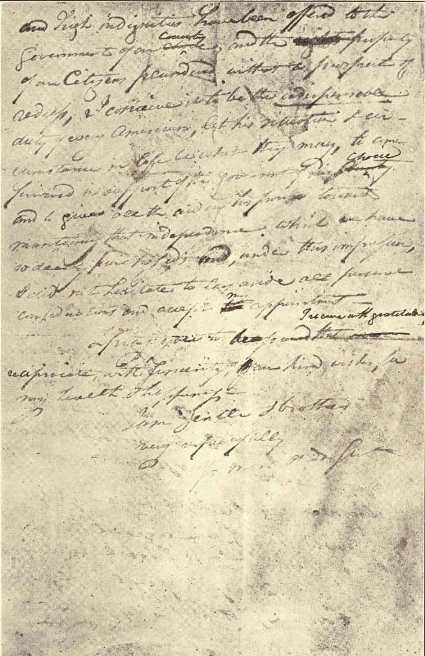 and high indignities have been offered to the
Government of our Country, and the property
of our Citizens plundered without a prospect of
redress, I conceive it to be the indispensable
duty of every American, let his situation & cir-
cumstances in life be what they may, to come
forward in support of the govt of his choice
and to give all the aid in his power toward
maintaining that independence which we have
so dearly purchased; and, under this impression,
I did not hesitate to lay aside all personal
considerations and accept my appointment
I pray you to be assured that I receive with gratitude &
reciprocate with sincerity your kind wishes for
my health & happiness
I am Gentln & brothers
very respectfully